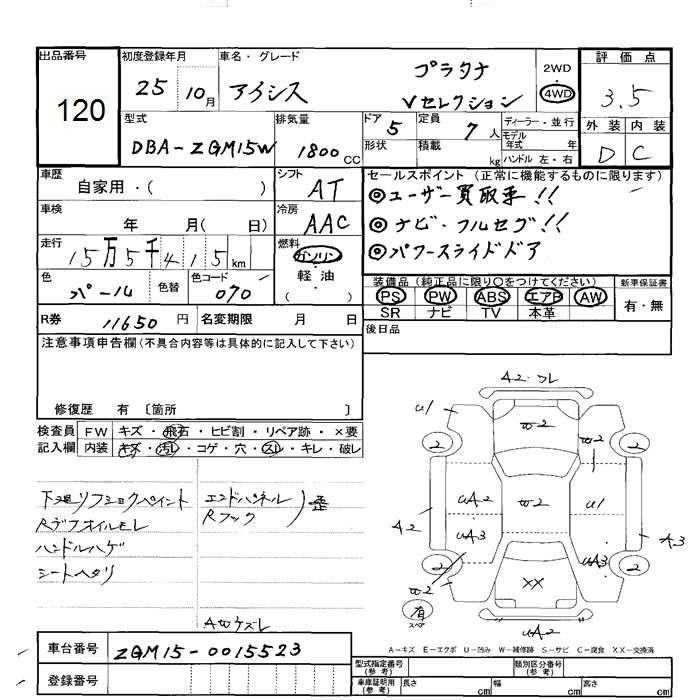 出品番号 初度登録年月 車名・グレード 評価点
120 25 10月 アイシス プラタナ Vセレクション 2WD 4WD 3.5
型式 排気量 ドア 5 定員 7人 ディーラー・並行 外装 内装
DBA-ZGM15W 1800cc 形状 積載 kg モデル年式 年 ハンドル 左・右 D C
車歴 シフト セールスポイント (正常に機能するものに限ります)
自家用・( ) AT ◎ユーザー買取車!!
車検 冷房 ◎ナビ・フルセグ!!
年 月( 日) AAC ◎パワースライドドア
走行 15万5千415km 燃料 ガソリン 軽油 ( )
装備品(純正品に限り○をつけてください) 新車保証書
色 パール 色替 色コード 070 PS PW ABS エアB AW 有・無
SR ナビ TV 本革
R券 11650円 名変期限 月 日 後日品
注意事項申告欄(不具合内容等は具体的に記入して下さい)
修復歴 有 〔箇所 〕
検査員 FW キズ・飛石・ヒビ割・リペア跡・×要
記入欄 内装 キズ・汚レ・コゲ・穴・スレ・キレ・破レ
A2・フレ
U1
W2
2 2
W2
UA2 W2 U1
A2 UA3 A3
UA3
2 2
W2 XX
有 スペア
UA2
エンドパネル
Rフック 歪
Rデフオイルモレ
ハンドルハゲ
シートヘタリ
A-キズ E-エクボ U-凹み W-補修跡 S-サビ C-腐食 XX-交換済
車台番号 ZGM15-0015523
登録番号
型式指定番号(参考) 類別区分番号(参考)
車庫証明用(参考) 長さ cm 幅 cm 高さ cm